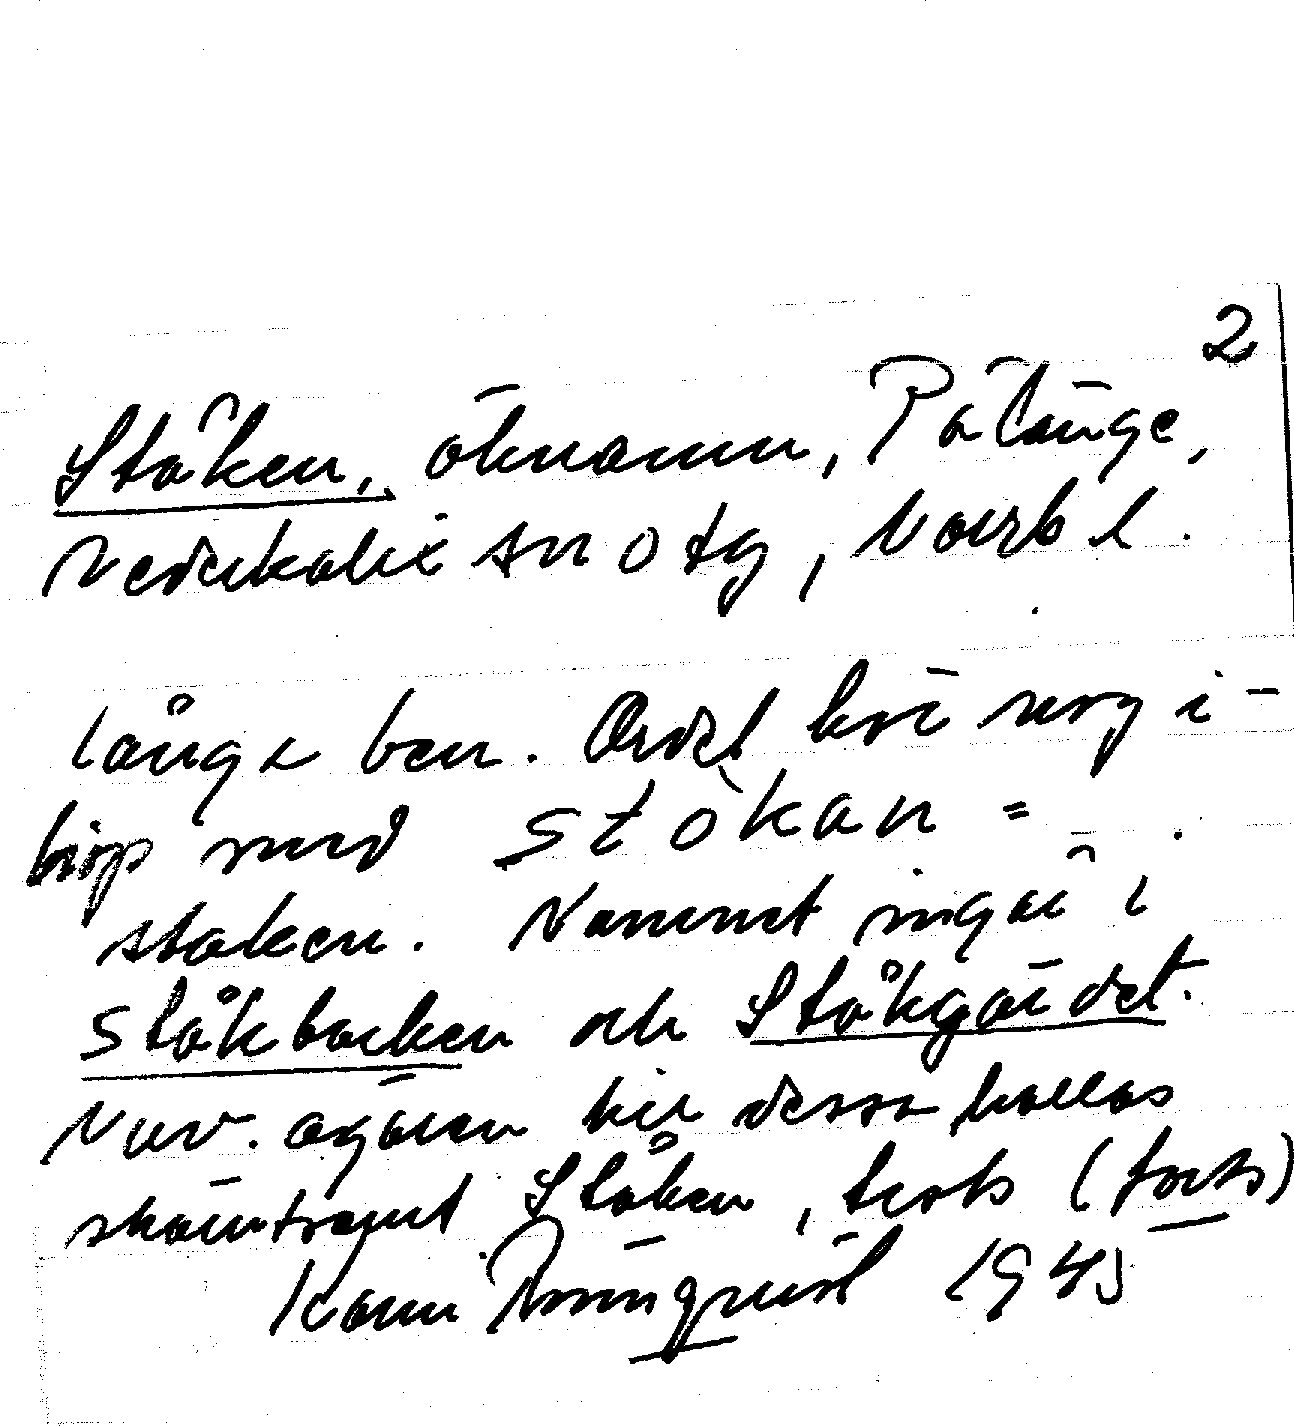 2
Ståken, öknamn, Pålänge,
Nederkalix sn o tg, Norrb l.
långa ben. Ordet hör nog i-
hop med stòkan =
staken. Namnet ingår i
Ståkbacken och Ståkgärdet.
Nuv. ägaren till dessa kallas
skämtsamt Ståken, trots (forts)
Karin Rönnqvist 1945